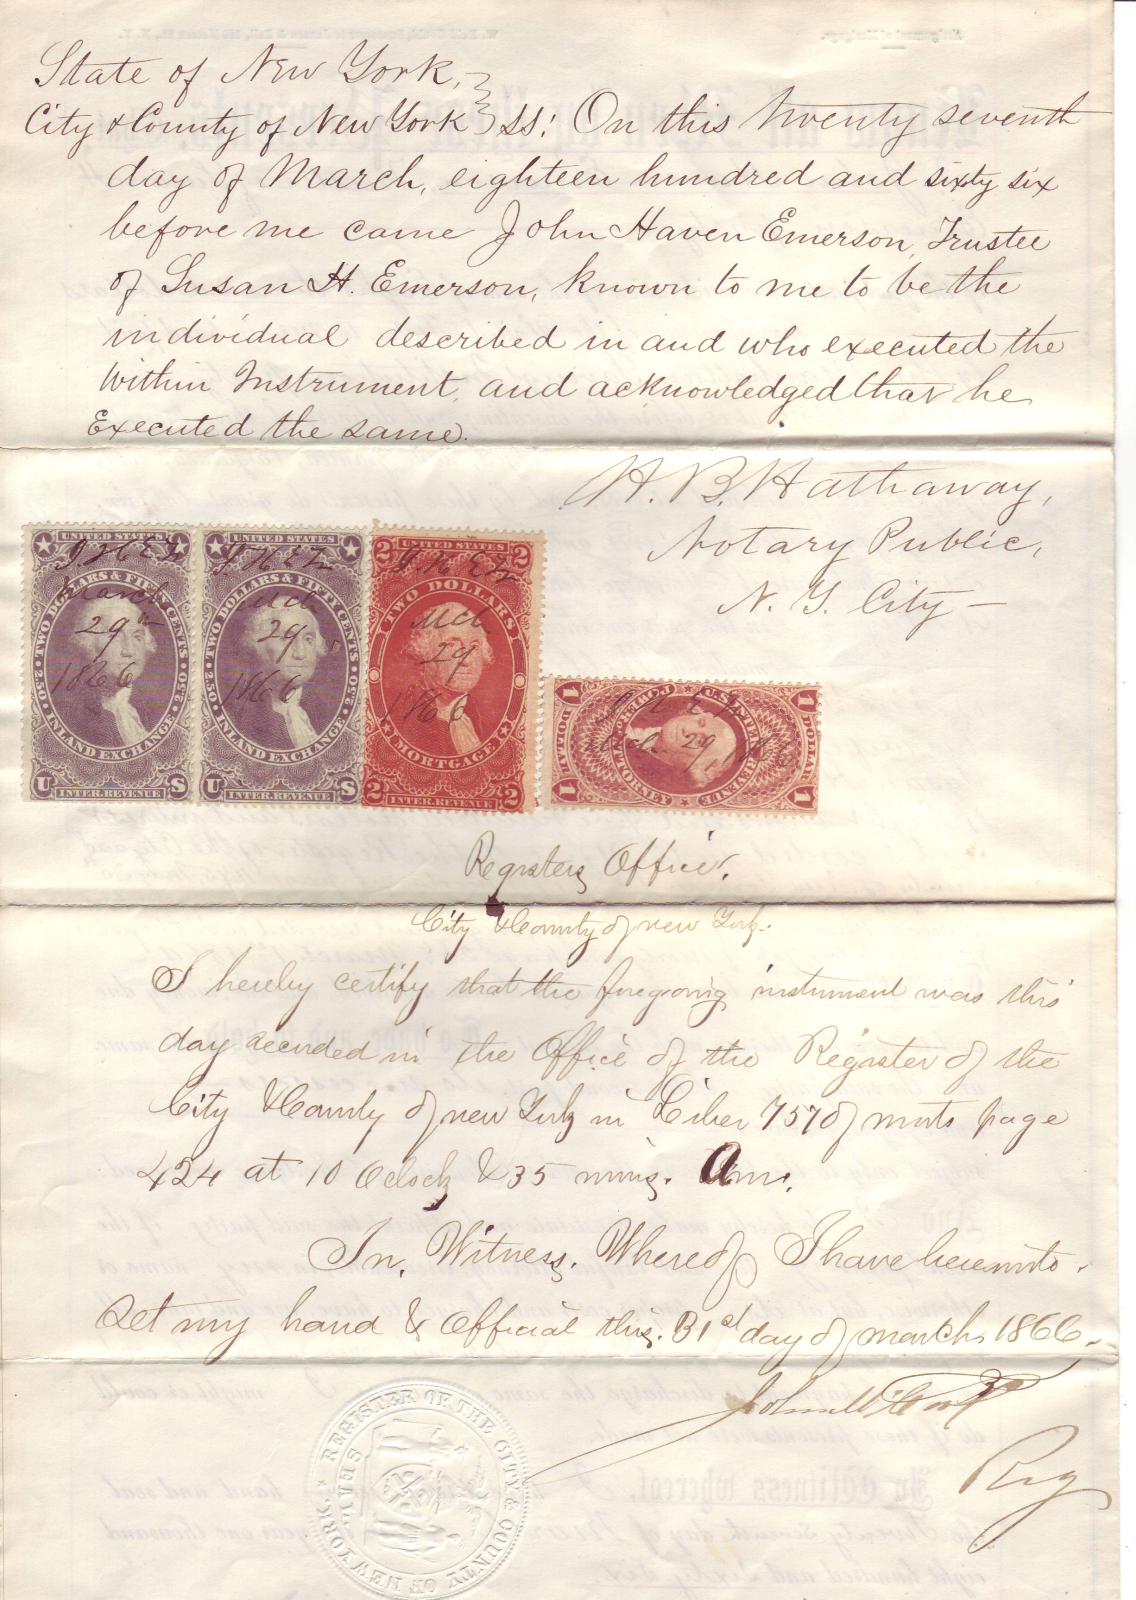 State of New York,
City & County of New York } SS: On this twenty seventh
day of March, eighteen hundred and sixty six
before me came John Haven Emerson, Trustee
of Susan H. Emerson, known to me to be the
individual described in and who executed the
within Instrument, and acknowledged that he
Executed the same.
H. B. Hathaway,
Notary Public,
N. Y. City —
UNITED STATES
TWO DOLLARS & FIFTY CENTS
2.50 2.50
INLAND EXCHANGE
U INTER. REVENUE S
March
29
1866
UNITED STATES
TWO DOLLARS & FIFTY CENTS
2.50 2.50
INLAND EXCHANGE
U INTER. REVENUE S
Mch
29
1866
2 UNITED STATES 2
TWO DOLLARS
MORTGAGE
2 INTER. REVENUE 2
Mch
29
1866
1 ONE DOLLAR 1
POWER OF ATTORNEY
U.S. INTER. REVENUE
1 DOLLAR 1
March 29 1866
Registers Office.
City & County of new York.
I hereby certify that the foregoing instrument was this
day recorded in the Office of the Register of the
City & County of new York in Liber 757 of morts page
424 at 10 Oclock & 35 mins. Am.
In, Witness, Whereof I have hereunto.
Set my hand & Official this. 31st day of march, 1866
Reg
REGISTER OF THE CITY & COUNTY OF NEW YORK
SEAL